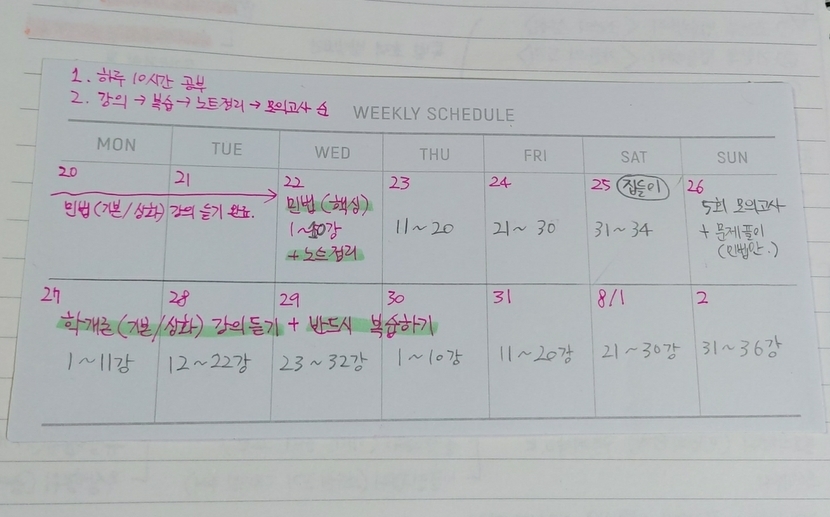 1. 하루 10시간 공부
2. 강의 → 복습 → 노트정리 → 모의고사 순
WEEKLY SCHEDULE
MON TUE WED THU FRI SAT SUN
20 21 22 23 24 25 집들이 26
민법(기본/심화) 강의 듣기 완료.
민법(핵심)
1~10강
+ 노트정리
11~20
21~30
31~34
5회 모의고사
+ 문제풀이
(민법만.)
27 28 29 30 31 8/1 2
학개론(기본/심화) 강의듣기 + 반드시 복습하기
1~11강 12~22강 23~32강 1~10강 11~20강 21~30강 31~36강